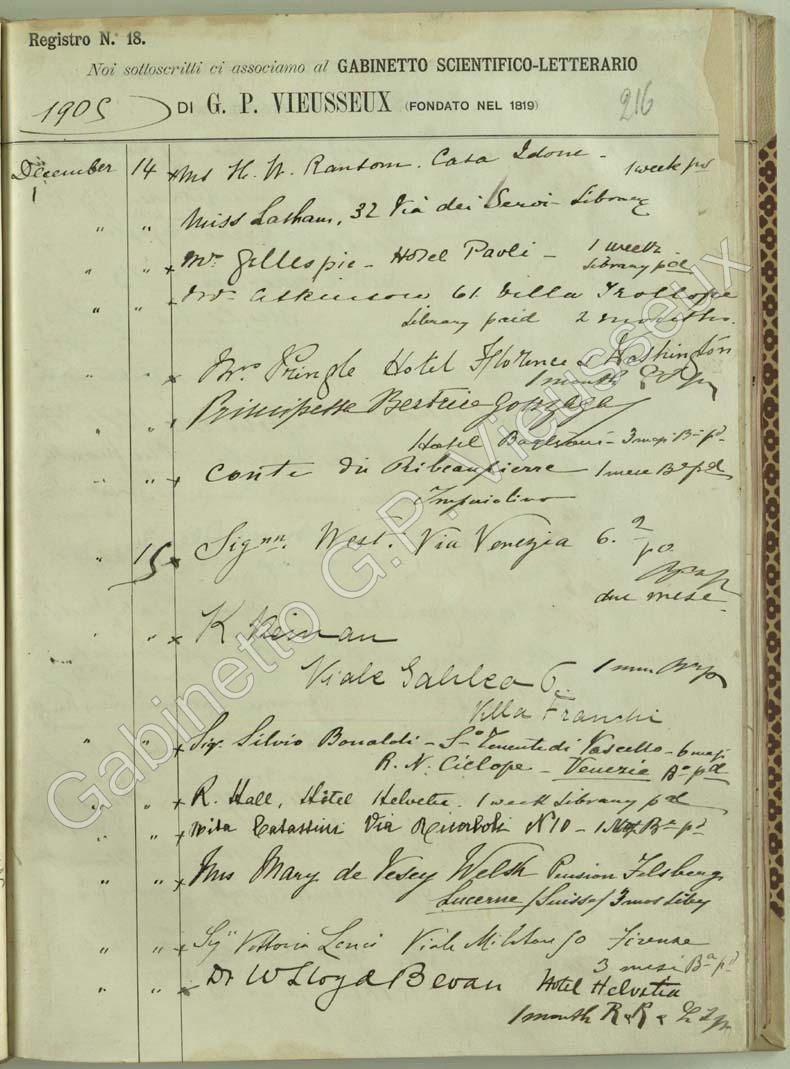 Registro N.° 18.
Noi sottoscritti ci associamo al GABINETTO SCIENTIFICO-LETTERARIO
1905 DI G. P. VIEUSSEUX (FONDATO NEL 1819) 216
December 14 x H. W. Ransom. Casa Idone - 1 week pd
" " Miss Latham, 32 Via dei Servi - Library
" " x Mr. Gillespie - Hotel Paoli - 1 week -
Library pd
" " x Atkinson 61. Villa Trollope
Library paid 2 months.
" " x Mrs Pringle Hotel Florence & Washington
1 month
" " x Principessa Gonzaga
Hotel Baglioni - 3 mesi Ba pd
" " x Conte di Ribeaupierre 1 mese Ba pd
" 15 x West. Via Venezia 6. 2°
po
due mese
" " x K
Viale Galileo 6.
Villa Franchi
" " x Sig. Silvio Bonaldi - So Tenente di Vascello - 6 mesi
R. N. Ciclope - Venezia Ba pd
" " x R. Hall, Hôtel Helvetia. 1 week Library pd
" " x Via N 10 - 1 Ba pd
" " x Mrs Mary de Vesey Welsh Pension Felsberg
Lucerne /Suisse/ 3 mos Liby
" " x Vittoria Lenci Viale Militare 50 Firenze
3 mesi Ba pd
" " Dr W Lloyd Bevan Hotel Helvetia
1 month R. R.
Gabinetto G.P. Vieusseux